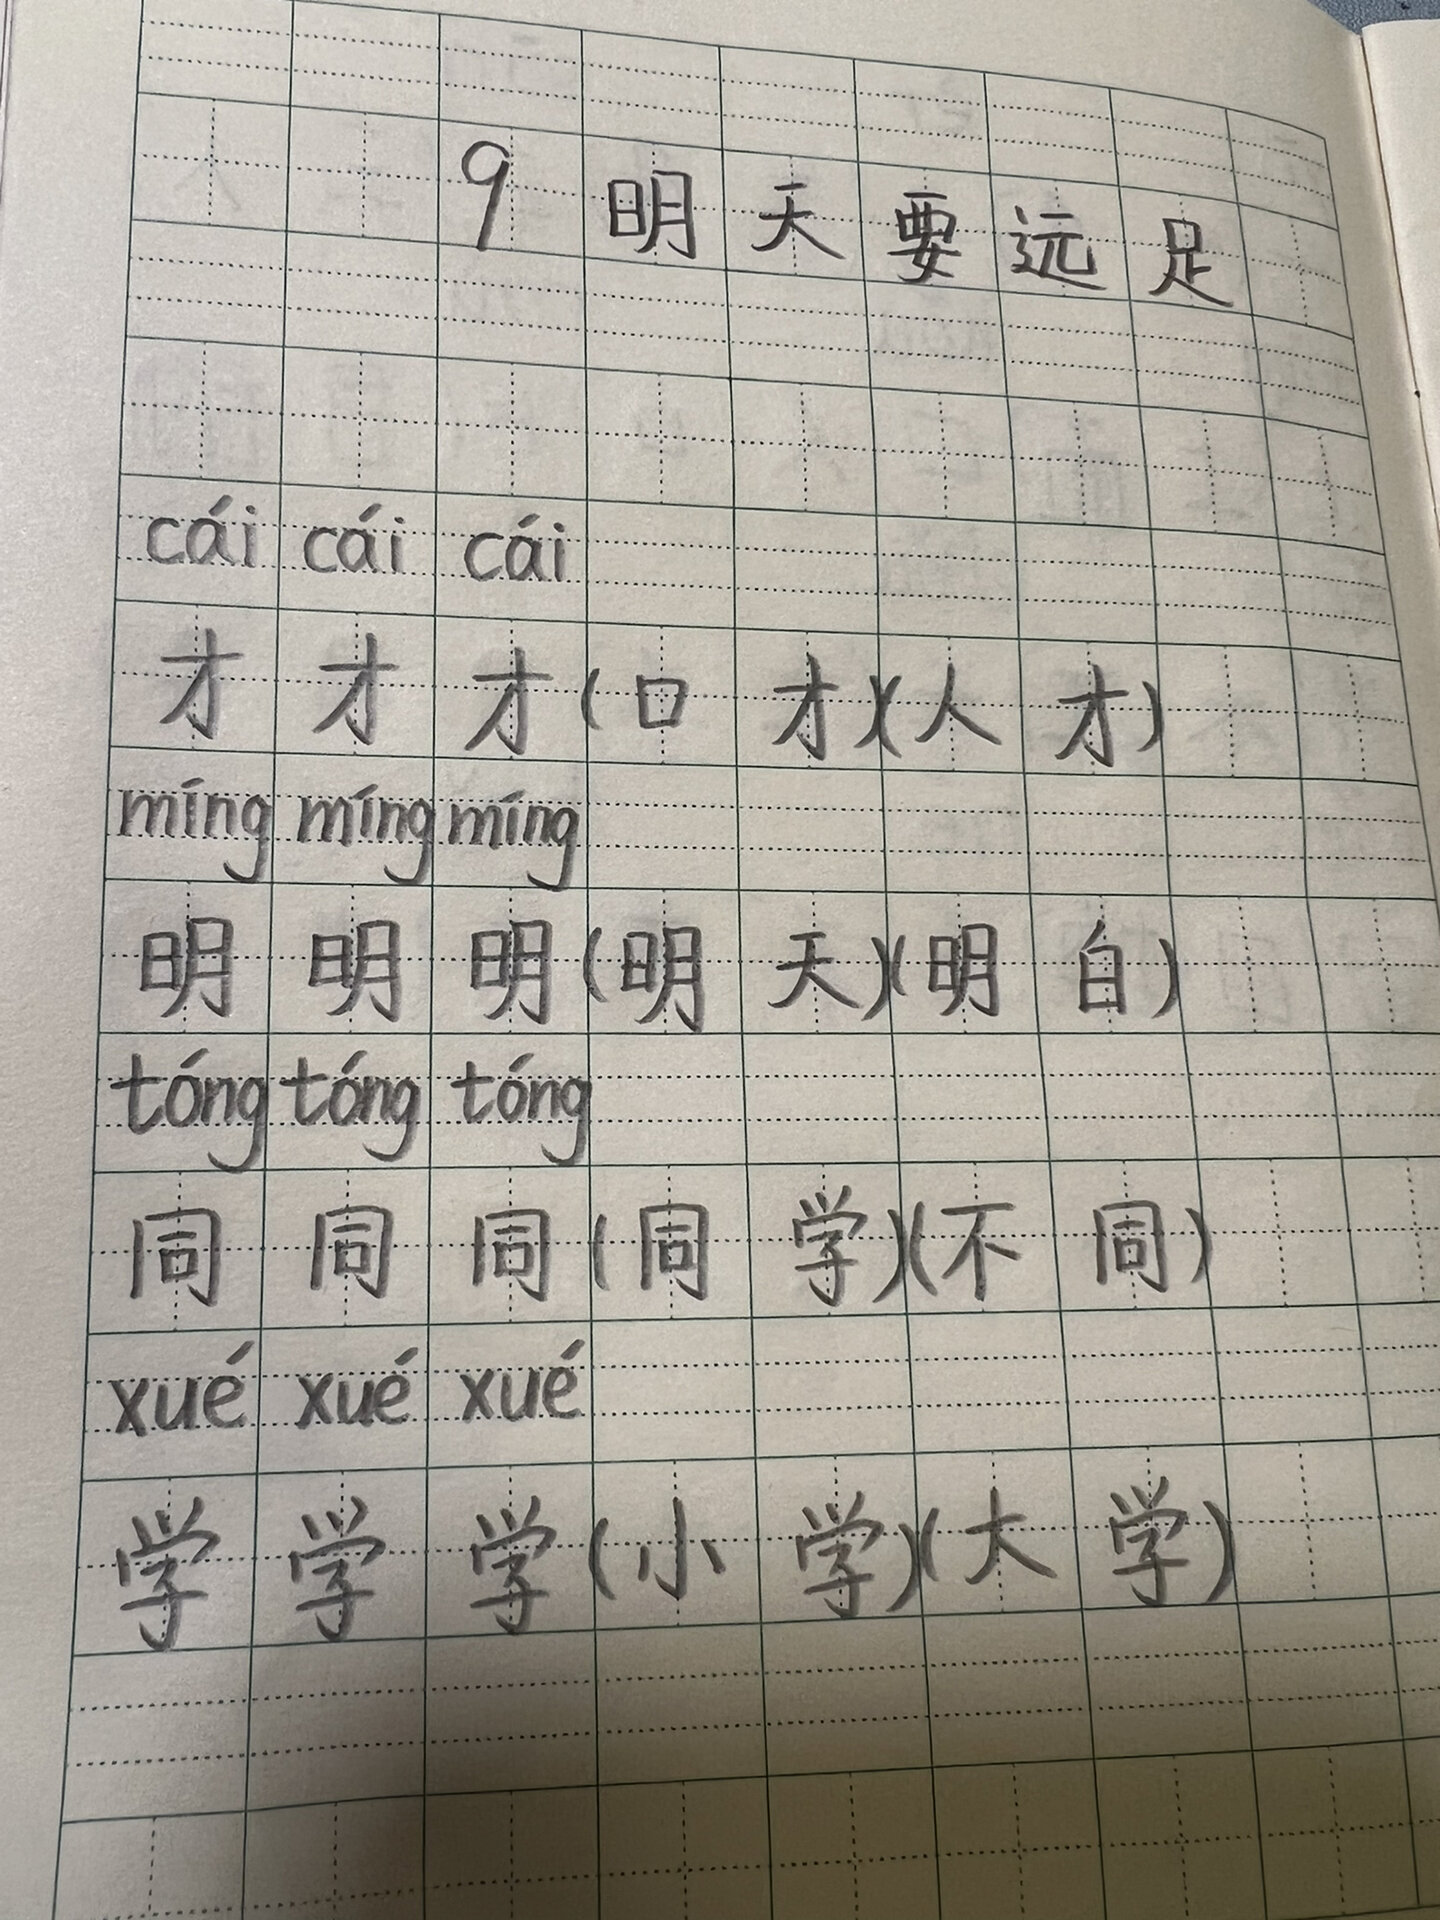 9 明天要远足
cái cái cái
才 才 才 (口才)(人才)
míng míng míng
明 明 明 (明天)(明白)
tóng tóng tóng
同 同 同 (同学)(不同)
xué xué xué
学 学 学 (小学)(大学)